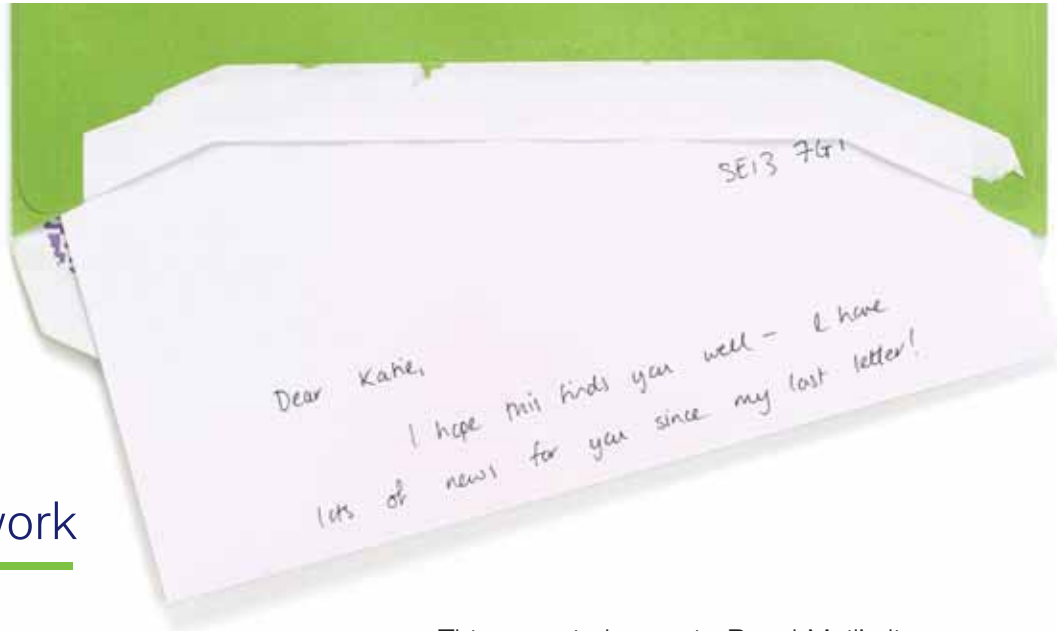 SE13
Dear Katie,
I hope this finds you well – I have
lots of news for you since my last letter!
work